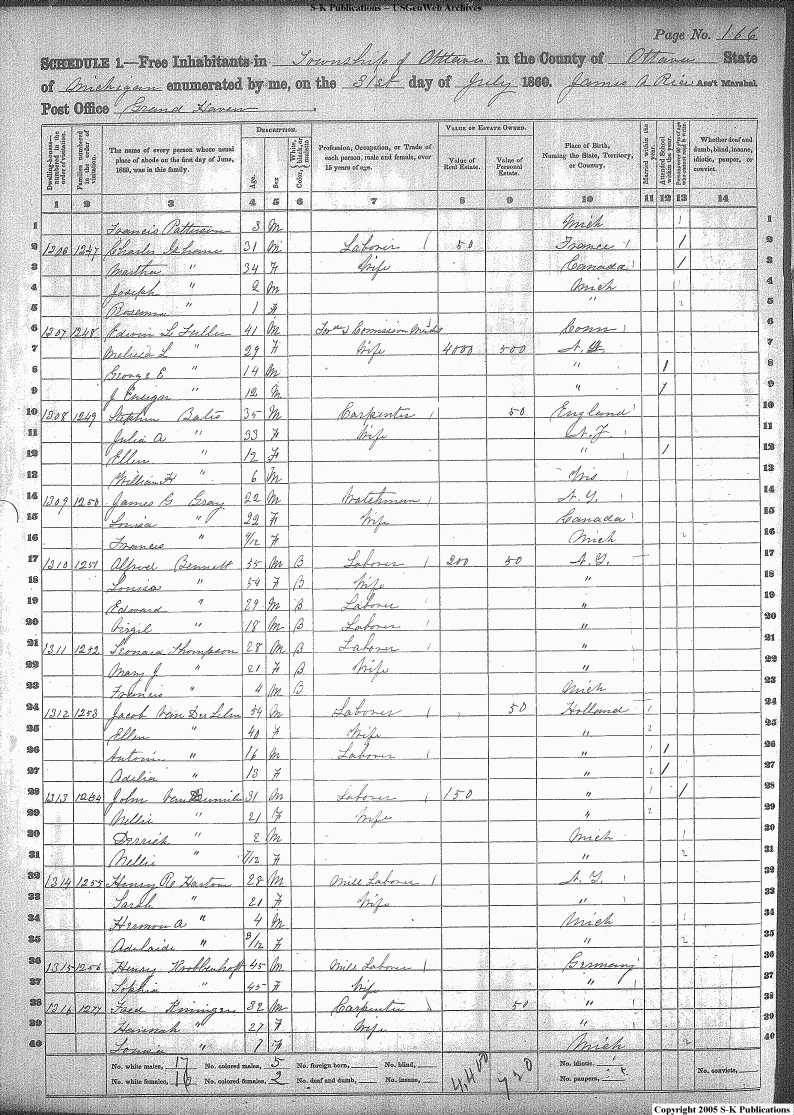 S-K Publications – USGenWeb Archives
Page No. 166
SCHEDULE 1.—Free Inhabitants in Township of Ottawa in the County of Ottawa State
of Michigan enumerated by me, on the 31st day of July 1860. James A Rice Ass't Marshal
Post Office Grand Haven
Dwelling-houses—numbered in the order of visitation.
Families numbered in the order of visitation.
The name of every person whose usual place of abode on the first day of June, 1860, was in this family.
DESCRIPTION.
Age.
Sex
Color, White, black, or mulatto
Profession, Occupation, or Trade of each person, male and female, over 15 years of age.
VALUE OF ESTATE OWNED.
Value of Real Estate.
Value of Personal Estate.
Place of Birth, Naming the State, Territory, or Country.
Married within the year.
Attended School within the year.
Whether deaf and dumb, blind, insane, idiotic, pauper, or convict.
1 2 3 4 5 6 7 8 9 10 11 12 13 14
1 Francis Patterson 3 M Mich 1
2 1306 1247 Charles 31 M Laborer 50 France / 2
3 Martha " 34 F Wife Canada / 3
4 Joseph " 2 M Mich 4
5 Rosanna " 1 F " 5
6 1307 1248 Edwin L Fuller 41 M Conn 6
7 Melissa L " 29 F Wife 4000 500 N.Y. 7
8 George E " 14 M " 1 8
9 J Ensign " 12 M " 1 9
10 1308 1249 Stephen Bates 35 M Carpenter 50 England 10
11 Julia A " 33 F Wife N.Y. 11
12 Ellen " 12 F " 1 12
13 William H " 6 M Wis 13
14 1309 1250 James G Gray 22 M Waterman N.Y. 14
15 Louisa " 22 F Wife Canada 15
16 Francis " /12 F Mich 16
17 1310 1251 Alfred Bennett 55 M B Laborer 200 50 N.Y. 17
18 Louisa " 54 F B Wife " 18
19 Edward " 29 M B Laborer " 19
20 Virgil " 18 M B Laborer " 20
21 1311 1252 Leonard Thompson 28 M B Laborer " 21
22 Mary J " 21 F B Wife " 22
23 Francis " 4 M B Mich 23
24 1312 1253 Jacob Van Der 54 M Laborer 50 Holland 24
25 Ellen " 40 F Wife " 25
26 Antoin " 16 M Laborer " 1 26
27 Adelia " 13 F " 1 27
28 1313 1254 John 31 M Laborer 150 " / 28
29 Nellie " 21 F Wife " 29
30 Derrick " 2 M Mich 30
31 Nellie " 7/12 F " 31
32 1314 1255 Henry R Harton 28 M Mill Laborer N.Y. 32
33 Sarah " 21 F Wife " 33
34 Hermon A " 4 M Mich 34
35 Adelaide " 3/12 F " 35
36 1315 1256 Henry 45 M Mill Laborer Germany 36
37 Sophia " 45 F Wife " 37
38 1316 1257 Fred 32 M Carpenter 50 " 38
39 Hannah " 27 F Wife " 39
40 Louisa " 1 F Mich 40
No. white males, 17 No. colored males, 5 No. foreign born, No. blind, 4,400 700 No. idiotic,
No. white females, 16 No. colored females, 2 No. deaf and dumb, No. insane, No. paupers, No. convicts,
Copyright 2005 S-K Publications